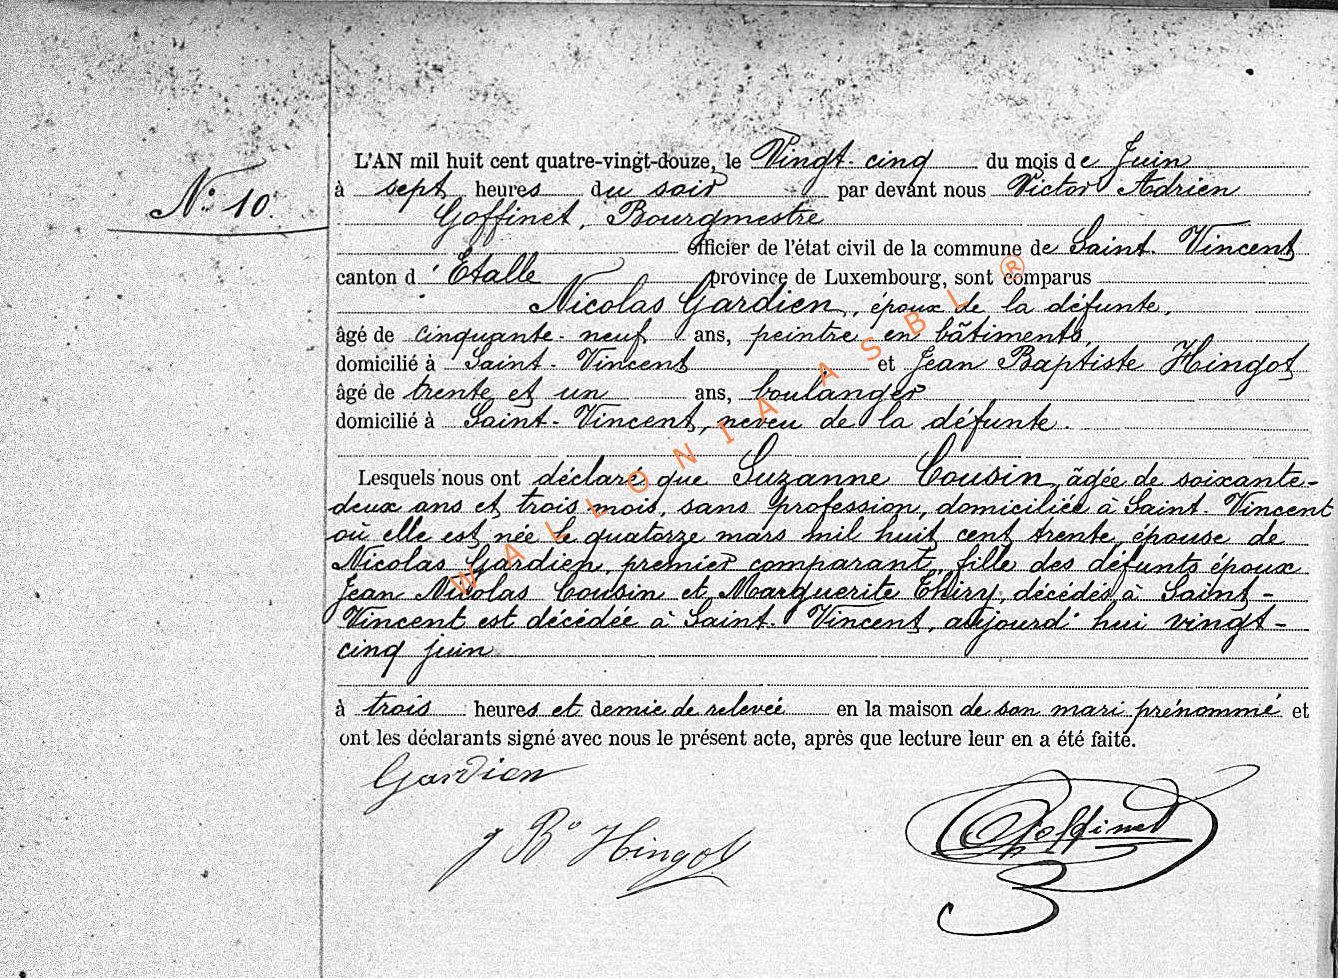 L'AN mil huit cent quatre-vingt-douze, le Vingt-cinq du mois de Juin
N° 10.
à sept heures du soir par devant nous Victor Adrien
Goffinet, Bourgmestre
officier de l'état civil de la commune de Saint-Vincent
canton d'Etalle province de Luxembourg, sont comparus
Nicolas Gardien, époux de la défunte,
âgé de cinquante-neuf ans, peintre en bâtiments,
domicilié à Saint-Vincent et Jean Baptiste Hingot
âgé de trente et un ans, boulanger
domicilié à Saint-Vincent, neveu de la défunte.
Lesquels nous ont déclaré que Suzanne Cousin, âgée de soixante-
deux ans et trois mois, sans profession, domiciliée à Saint-Vincent
où elle est née le quatorze mars mil huit cent trente, épouse de
Nicolas Gardien, premier comparant, fille des défunts époux
Jean Nicolas Cousin et Marguerite Thiry, décédés à Saint-
Vincent est décédée à Saint-Vincent, aujourd'hui vingt-
cinq juin
à trois heures et demie de relevée en la maison de son mari prénommé et
ont les déclarants signé avec nous le présent acte, après que lecture leur en a été faite.
Gardien
J Bte Hingot
Goffinet
WALLONIA ASBL ®